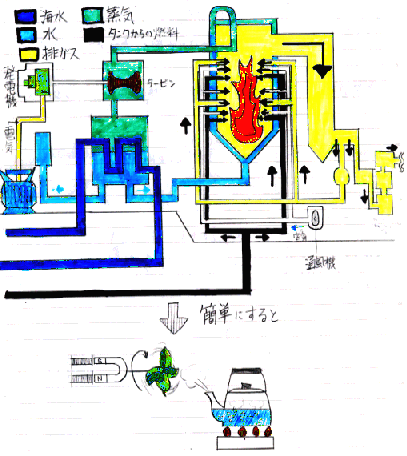 海水
蒸気
水
タンクからの燃料
排ガス
発電機
タービン
電気
空気
通風機
簡単にすると
S
N